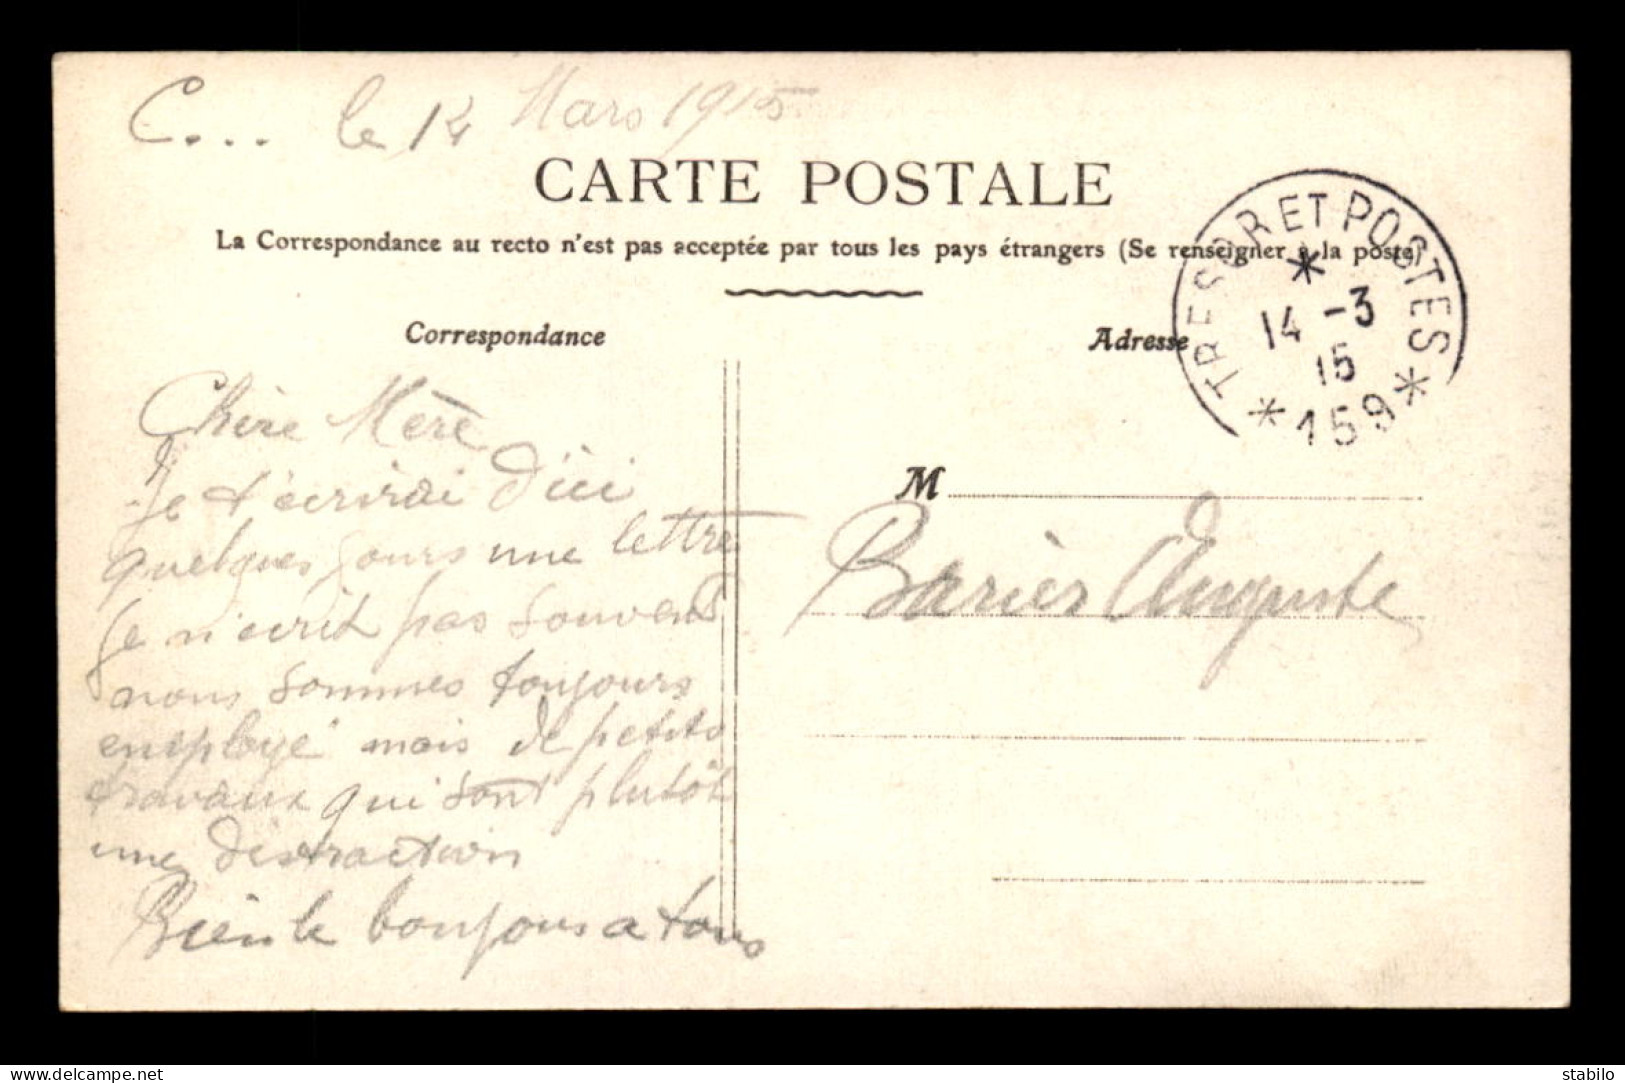 C... le 14 Mars 1915
CARTE POSTALE
La Correspondance au recto n'est pas acceptée par tous les pays étrangers (Se renseigner à la poste)
Correspondance
Adresse
TRESOR ET POSTES
14 -3
15
* 159 *
Chère Mère
Je t'écrirai d'ici
quelques jours une lettre
Je n'ecrit pas souvent
nous sommes toujours
employé mais de petits
travaux qui sont plutôt
une distraction
Bien le bonjour a tous
M
Barièr Auguste
delcampe.net
stabilo